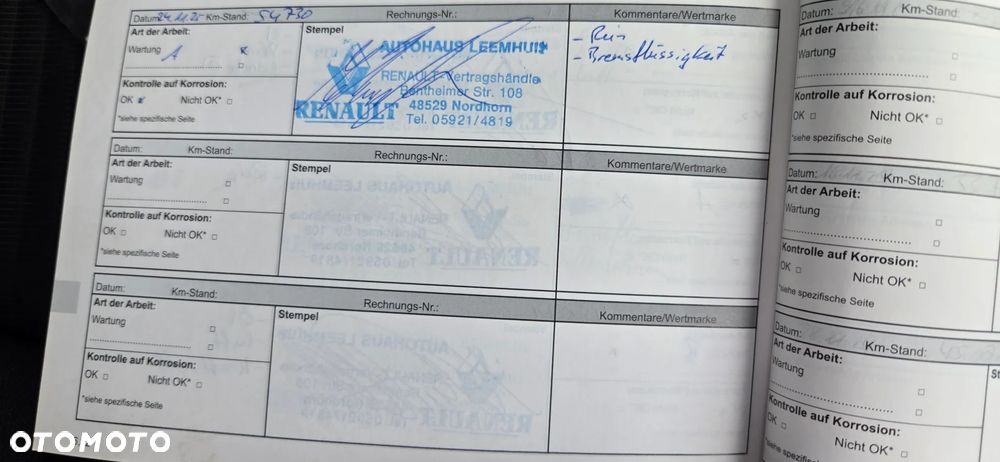 Datum: 24.11.25 Km-Stand: 54730 Rechnungs-Nr.: Kommentare/Wertmarke
Art der Arbeit: Stempel
Wartung A
AUTOHAUS LEEMHUIS
RENAULT-Vertragshändle
Bentheimer Str. 108
RENAULT 48529 Nordhorn
Tel. 05921/4819
- Bremsflüssigkeit
Kontrolle auf Korrosion:
OK Nicht OK*
*siehe spezifische Seite
Datum: Km-Stand: Rechnungs-Nr.: Kommentare/Wertmarke
Art der Arbeit: Stempel
Wartung
Kontrolle auf Korrosion:
OK Nicht OK*
*siehe spezifische Seite
Datum: Km-Stand: Rechnungs-Nr.: Kommentare/Wertmarke
Art der Arbeit: Stempel
Wartung
Kontrolle auf Korrosion:
OK Nicht OK*
*siehe spezifische Seite
Datum: Km-Stand:
Art der Arbeit:
Wartung
Kontrolle auf Korrosion:
OK Nicht OK*
*siehe spezifische Seite
Datum: Km-Stand:
Art der Arbeit:
Wartung
Kontrolle auf Korrosion:
OK Nicht OK*
*siehe spezifische Seite
Datum: Km-Stand:
Art der Arbeit: St
Wartung
Kontrolle auf Korrosion:
OK Nicht OK*
*siehe spezifische Seite
OTOMOTO